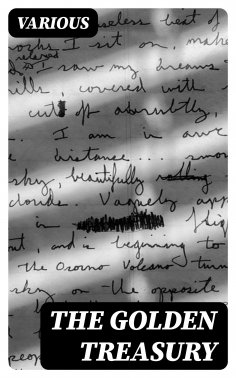 VARIOUS
useless best of
rocks I sit on, make
relaxed
I saw my dreams
ills, covered with
cut off abruptly,
I am in awe
distance.... smo
sky, beautifully
clouds. Vaguely app
in
out, and is beginning to
the Osorno Volcano turn
sky on the opposite
THE GOLDEN
TREASURY
peop